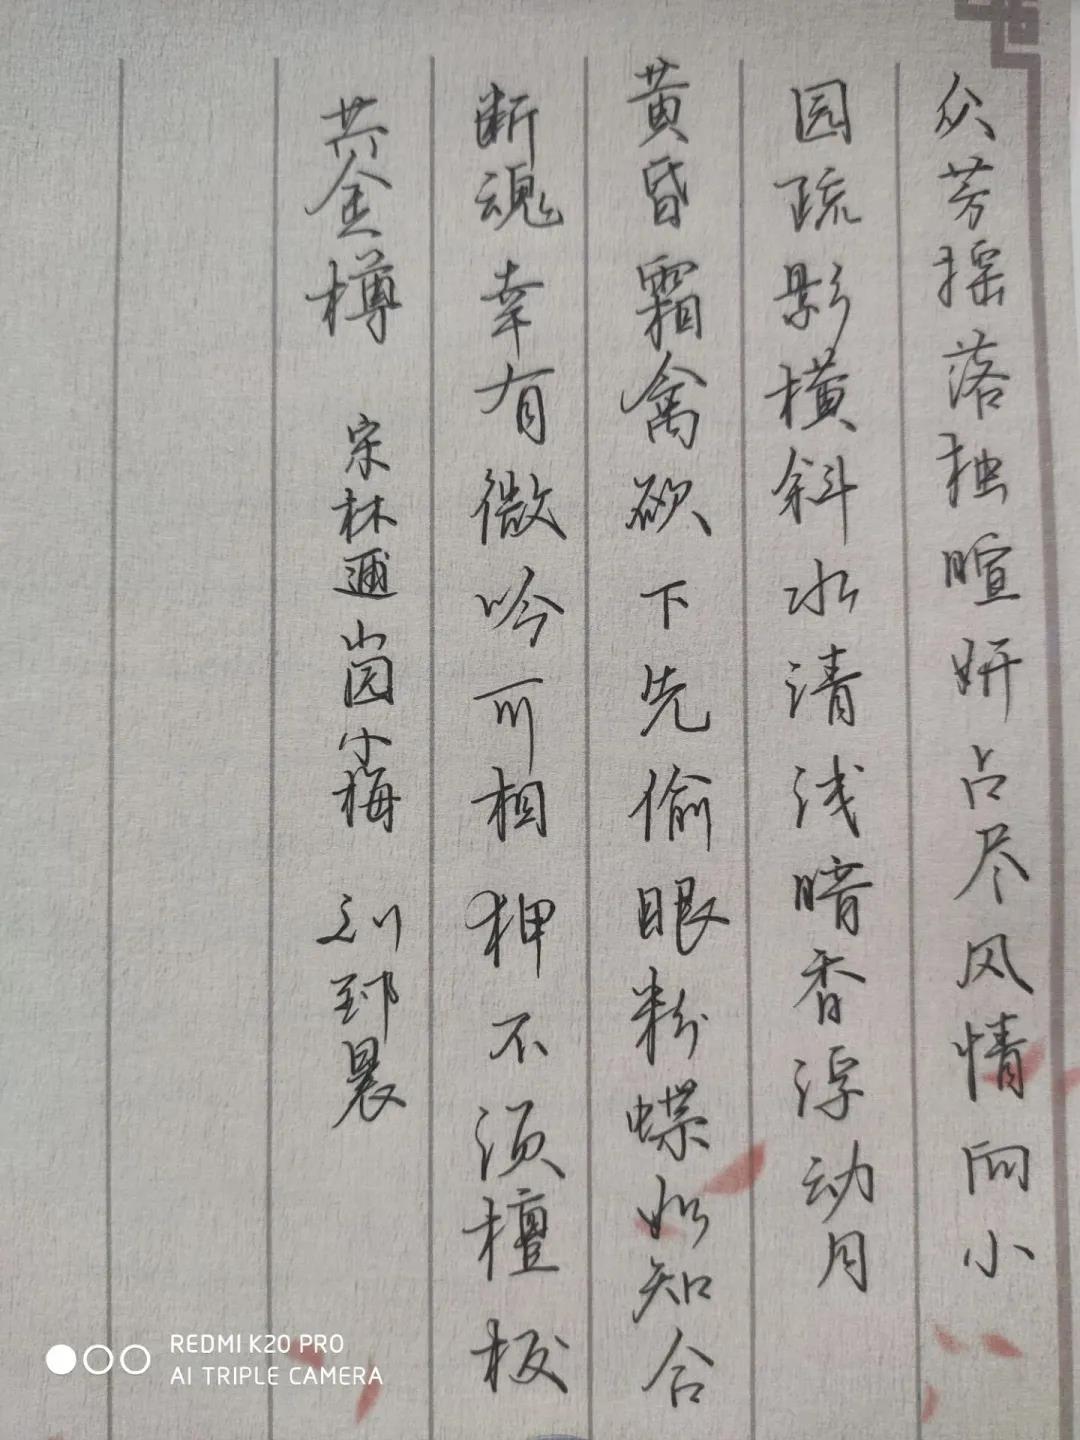 众芳摇落独暄妍占尽风情向小
园疏影横斜水清浅暗香浮动月
黄昏霜禽欲下先偷眼粉蝶如知合
断魂幸有微吟可相狎不须檀板
共金樽
宋林逋山园小梅
刘郅晨
REDMI K20 PRO
AI TRIPLE CAMERA